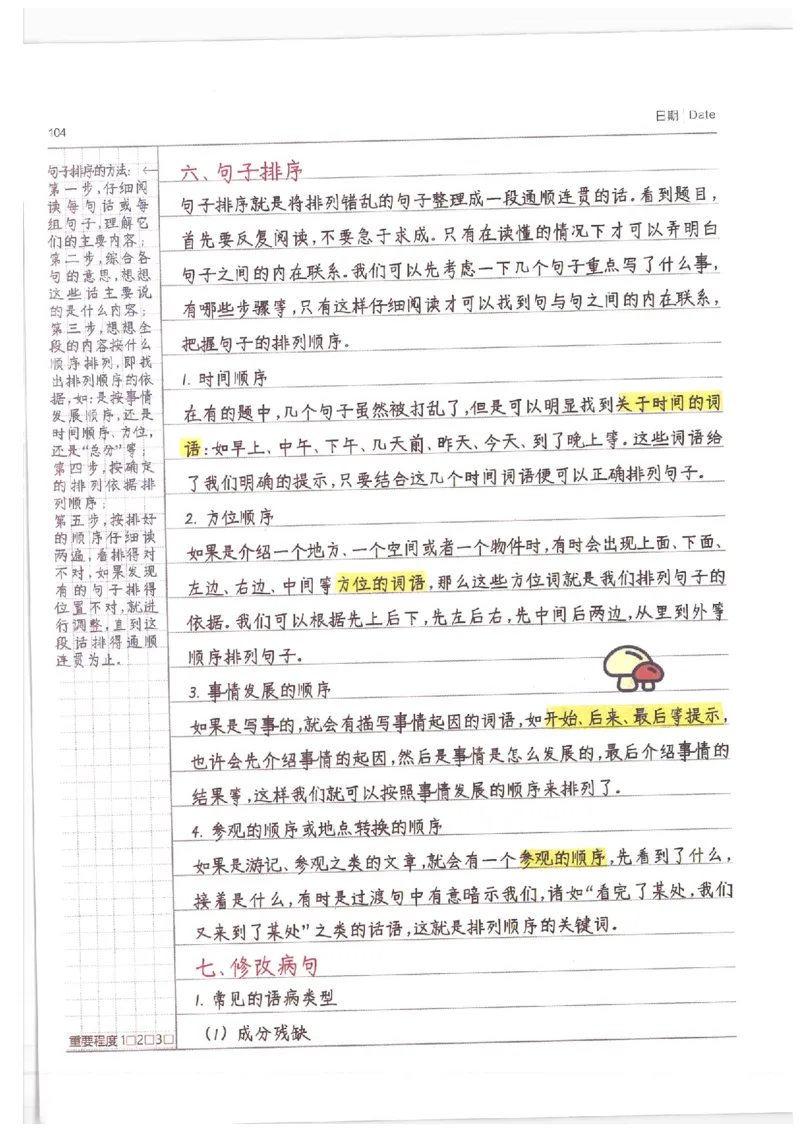 104
日期 Date
句子排序的方法: ←
第一步,仔细阅
读每句话或每
组句子,理解它
们的主要内容;
第二步,综合各
句的意思,想想
这些话主要说
的是什么内容;
第三步,想想全
段的内容按什么
顺序排列,即找
出排列顺序的依
据,如:是按事情
发展顺序,还是
时间顺序、方位,
还是“总分”等;
第四步,按确定
的排列依据排
列顺序;
第五步,按排好
的顺序仔细读
两遍,看排得对
不对,如果发现
有的句子排得
位置不对,就进
行调整,直到这
段话排得通顺
连贯为止。
重要程度 1□2□3□
六、句子排序
句子排序就是将排列错乱的句子整理成一段通顺连贯的话。看到题目,
首先要反复阅读,不要急于求成。只有在读懂的情况下才可以弄明白
句子之间的内在联系。我们可以先考虑一下几个句子重点写了什么事,
有哪些步骤等,只有这样仔细阅读才可以找到句与句之间的内在联系,
把握句子的排列顺序。
1. 时间顺序
在有的题中,几个句子虽然被打乱了,但是可以明显找到关于时间的词
语:如早上、中午、下午、几天前、昨天、今天、到了晚上等。这些词语给
了我们明确的提示,只要结合这几个时间词语便可以正确排列句子。
2. 方位顺序
如果是介绍一个地方、一个空间或者一个物件时,有时会出现上面、下面、
左边、右边、中间等方位的词语,那么这些方位词就是我们排列句子的
依据。我们可以根据先上后下,先左后右,先中间后两边,从里到外等
顺序排列句子。
3. 事情发展的顺序
如果是写事的,就会有描写事情起因的词语,如开始、后来、最后等提示,
也许会先介绍事情的起因,然后是事情是怎么发展的,最后介绍事情的
结果等,这样我们就可以按照事情发展的顺序来排列了。
4. 参观的顺序或地点转换的顺序
如果是游记、参观之类的文章,就会有一个参观的顺序,先看到了什么,
接着是什么,有时是过渡句中有意暗示我们,诸如“看完了某处,我们
又来到了某处”之类的话语,这就是排列顺序的关键词。
七、修改病句
1. 常见的语病类型
(1) 成分残缺